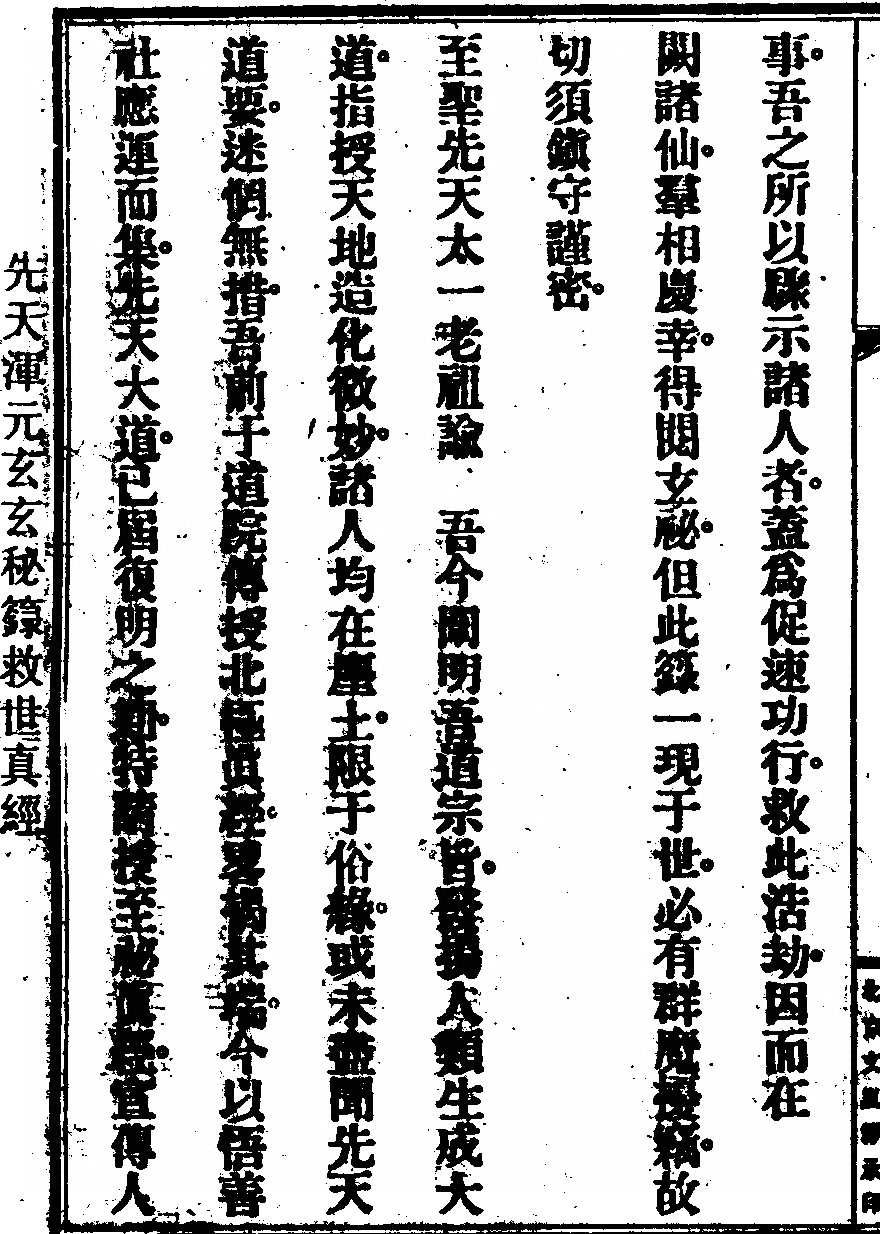 事。吾之所以驟示諸人者。蓋爲促速功行。救此浩劫。因而在
闕諸仙。羣相慶幸。得閱玄祕。但此籙一現于世。必有群魔擾竊。故
切須鎭守謹密。
至聖先天太一老祖諭　吾今闡明吾道宗旨。發揚人類生成大
道。指授天地造化微妙。諸人均在塵土。限于俗緣。或未盡聞先天
道要。迷惘無措。吾前于道院傳授北極眞經。畧揭其端。今以悟善
社應運而集。先天大道。已屆復明之期。特續授至祕眞經。宣傳人
先天渾元玄玄秘籙救世真經